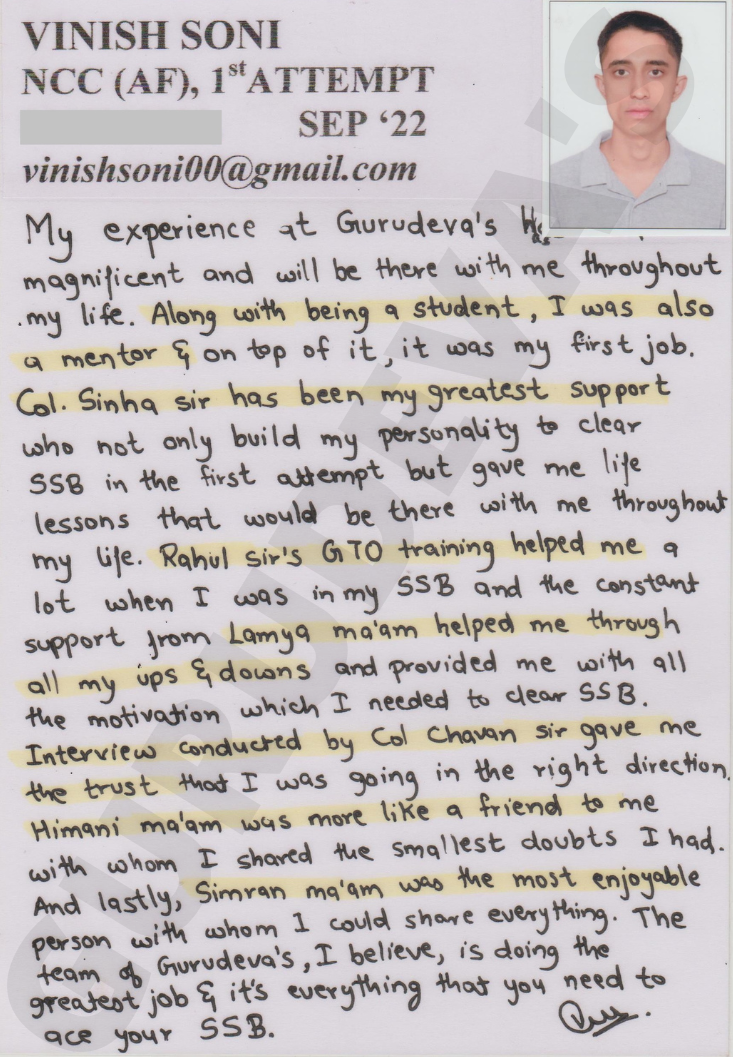 VINISH SONI
NCC (AF), 1st ATTEMPT
SEP ‘22
vinishsoni00@gmail.com
My experience at Gurudeva's
magnificent and will be there with me throughout
my life. Along with being a student, I was also
a mentor & on top of it, it was my first job.
Col. Sinha sir has been my greatest support
who not only build my personality to clear
SSB in the first attempt but gave me life
lessons that would be there with me throughout
my life. Rahul sir's GTO training helped me a
lot when I was in my SSB and the constant
support from Lamya ma'am helped me through
all my ups & downs and provided me with all
the motivation which I needed to clear SSB.
Interview conducted by Col Chavan sir gave me
the trust that I was going in the right direction.
Himani ma'am was more like a friend to me
with whom I shared the smallest doubts I had.
And lastly, Simran ma'am was the most enjoyable
person with whom I could share everything. The
team of Gurudeva's, I believe, is doing the
greatest job & it's everything that you need to
ace your SSB.
GURUDEVA'S